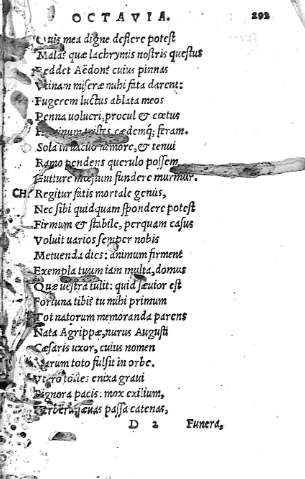 OCTAVIA. 292
Quis mea digne deflere potest
Mala? quæ lachrymis nostris questus
Reddet Aëdon? cuius pinnas
Vtinam miseræ nuhi fata darent:
Fugerem luctus ablata meos
Penna uolucri, procul & cœtus
Hominum tristes cædemq; feram.
Sola in uacuo nemore, & tenui
Ramo pendens querulo possem
Gutture mœstum fundere murmur.
CH. Regitur fatis mortale genus,
Nec sibi quidquam spondere potest
Firmum & stabile, perquam casus
Voluit uarios semper nobis
Metuenda dies: animum firment
Exempla tuum iam multa, domus
Quæ uestra tulit: quid sæuior est
Fortuna tibi? tu mihi primum
Tot natorum memoranda parens
Nata Agrippæ, nurus Augusti
Cæsaris uxor, cuius nomen
Clarum toto fulsit in orbe.
Vtero toties enixa graui
Pignora pacis: mox exilium,
Verbera, sæuas passa catenas,
D 2 Funera,